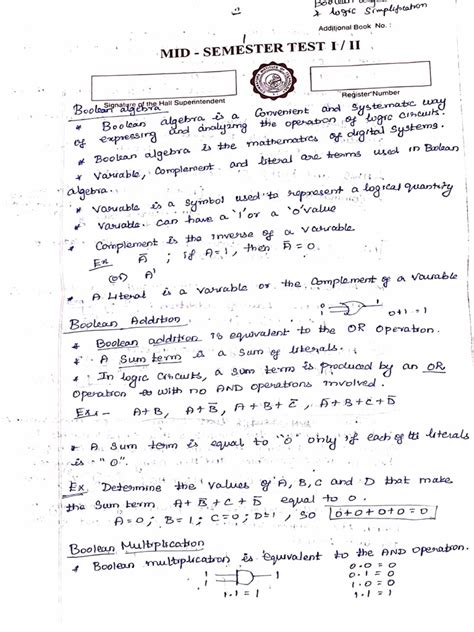 Boolean alg
* Logic Simplification
Additional Book No. :
MID - SEMESTER TEST I / II
Signature of the Hall Superintendent
Register Number
Boolean algebra
* Boolean algebra is a Convenient and Systematic way
of expressing and analyzing the operation of logic circuits.
* Boolean algebra is the mathematics of digital Systems.
* Variable, Complement and literal are terms used in Bolean
algebra.
* Variable is a Symbol used to represent a logical quantity
* Variable can have a '1' or a '0' value
* Complement is the inverse of a variable
Ex A̅ ; if A=1, then A̅ = 0.
(or) A'
* A Literal is a variable or the Complement of a variable
Boolean Addition
0 1 1
0+1 = 1
* Boolean addition is equivalent to the OR operation.
* A Sum term is a sum of literals.
* In logic circuits, a sum term is produced by an OR
Operation with no AND operations involved.
Ex:- A+B, A+B̅, A+B+C̅, A̅+B+C+D̅
* A Sum term is equal to "0" only if each of its literals
is "0".
Ex Determine the values of A, B, C and D that make
the Sum term A+B̅+C+D̅ equal to 0.
A=0; B=1; C=0; D=1, SO 0+0+0+0=0
Boolean Multiplication
* Boolean multiplication is equivalent to the AND operation.
1 1 1
1.1 = 1
0.0 = 0
0.1 = 0
1.0 = 0
1.1 = 1